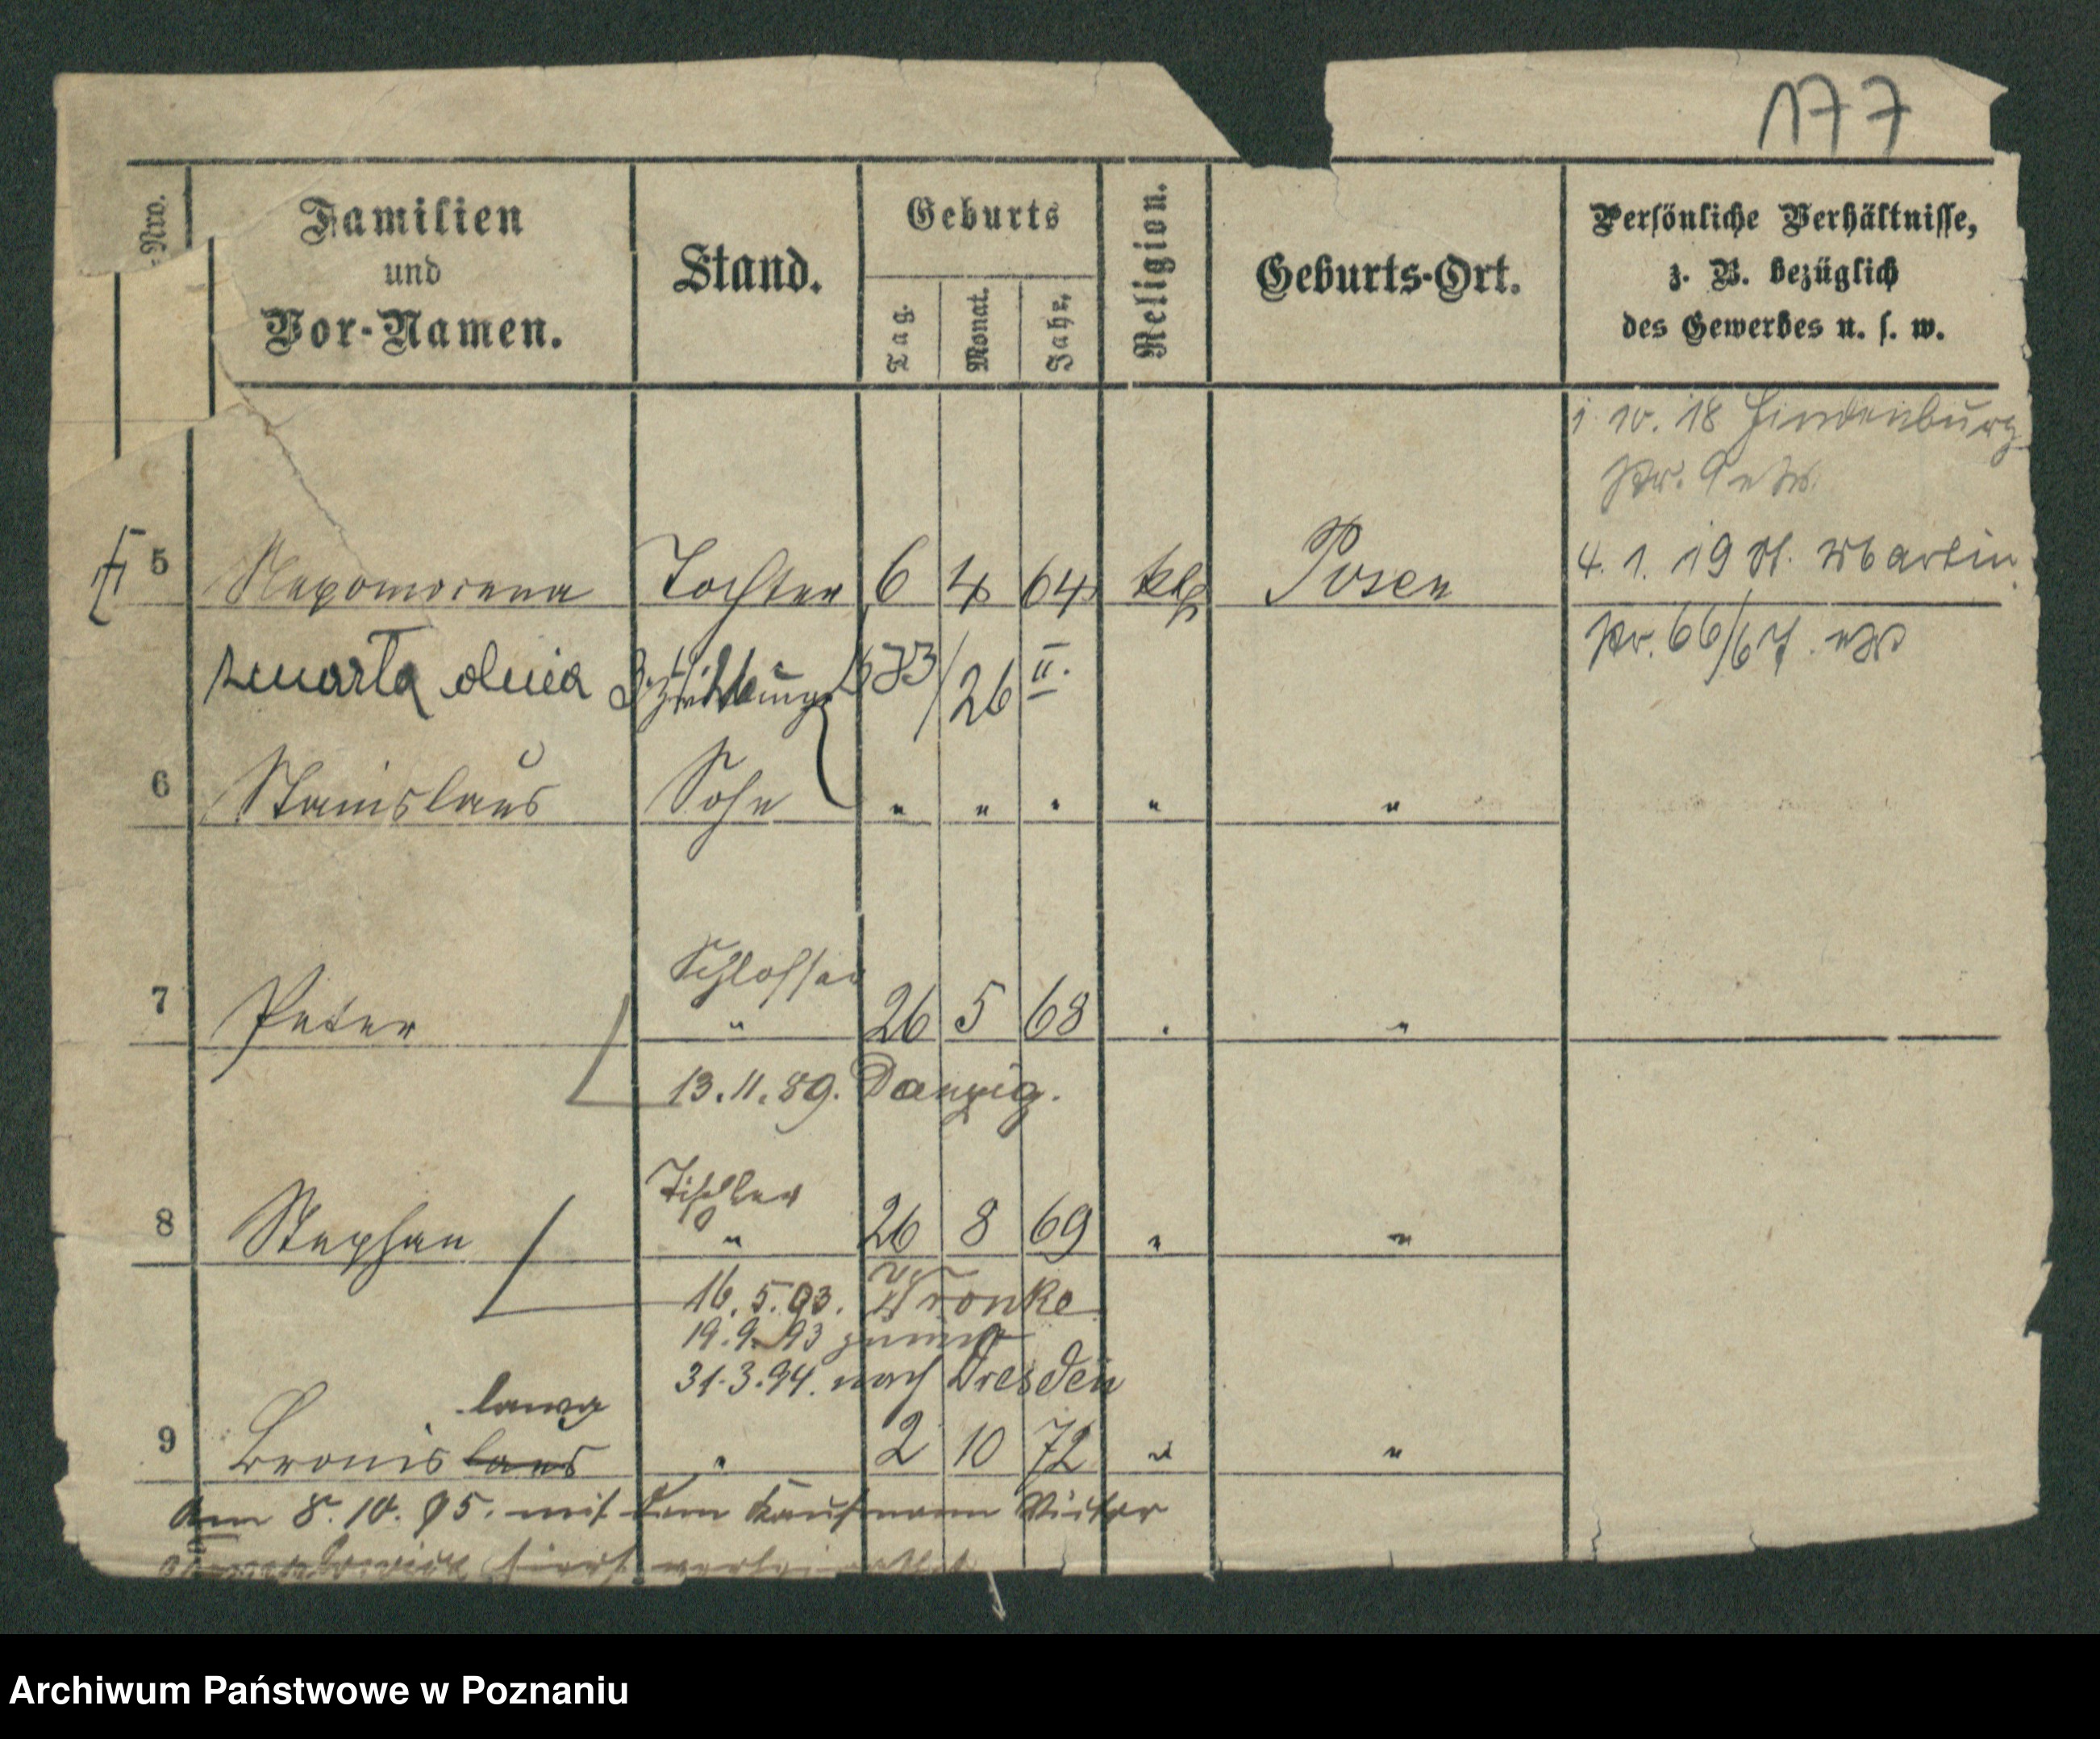 177
Nro.
Familien
und
Vor-Namen.
Stand.
Geburts
Tag.
Monat.
Jahr.
Religion.
Geburts-Ort.
Persönliche Verhältnisse,
z. B. bezüglich
des Gewerbes u. s. w.
1. 10. 18 Hindenburg
4. 1. 19 St. Martin
5 Nepomocena Tochter 6 4 64 kth Posen
66/67
zmarła dnia 26 II.
6 Stanislaus Sohn " " " " "
Schlosser
7 Peter " 26 5 68 " "
13.11.89. Danzig.
Tischler
8 Stephan " 26 8 69 " "
16.5.93. Wronke
19.9.93
31.3.94. nach Dresden
lawa
9 Bronislaus " 2 10 72 " "
Am 8.10.95. mit dem Kaufmann Victor
hier verheirathet
Archiwum Państwowe w Poznaniu